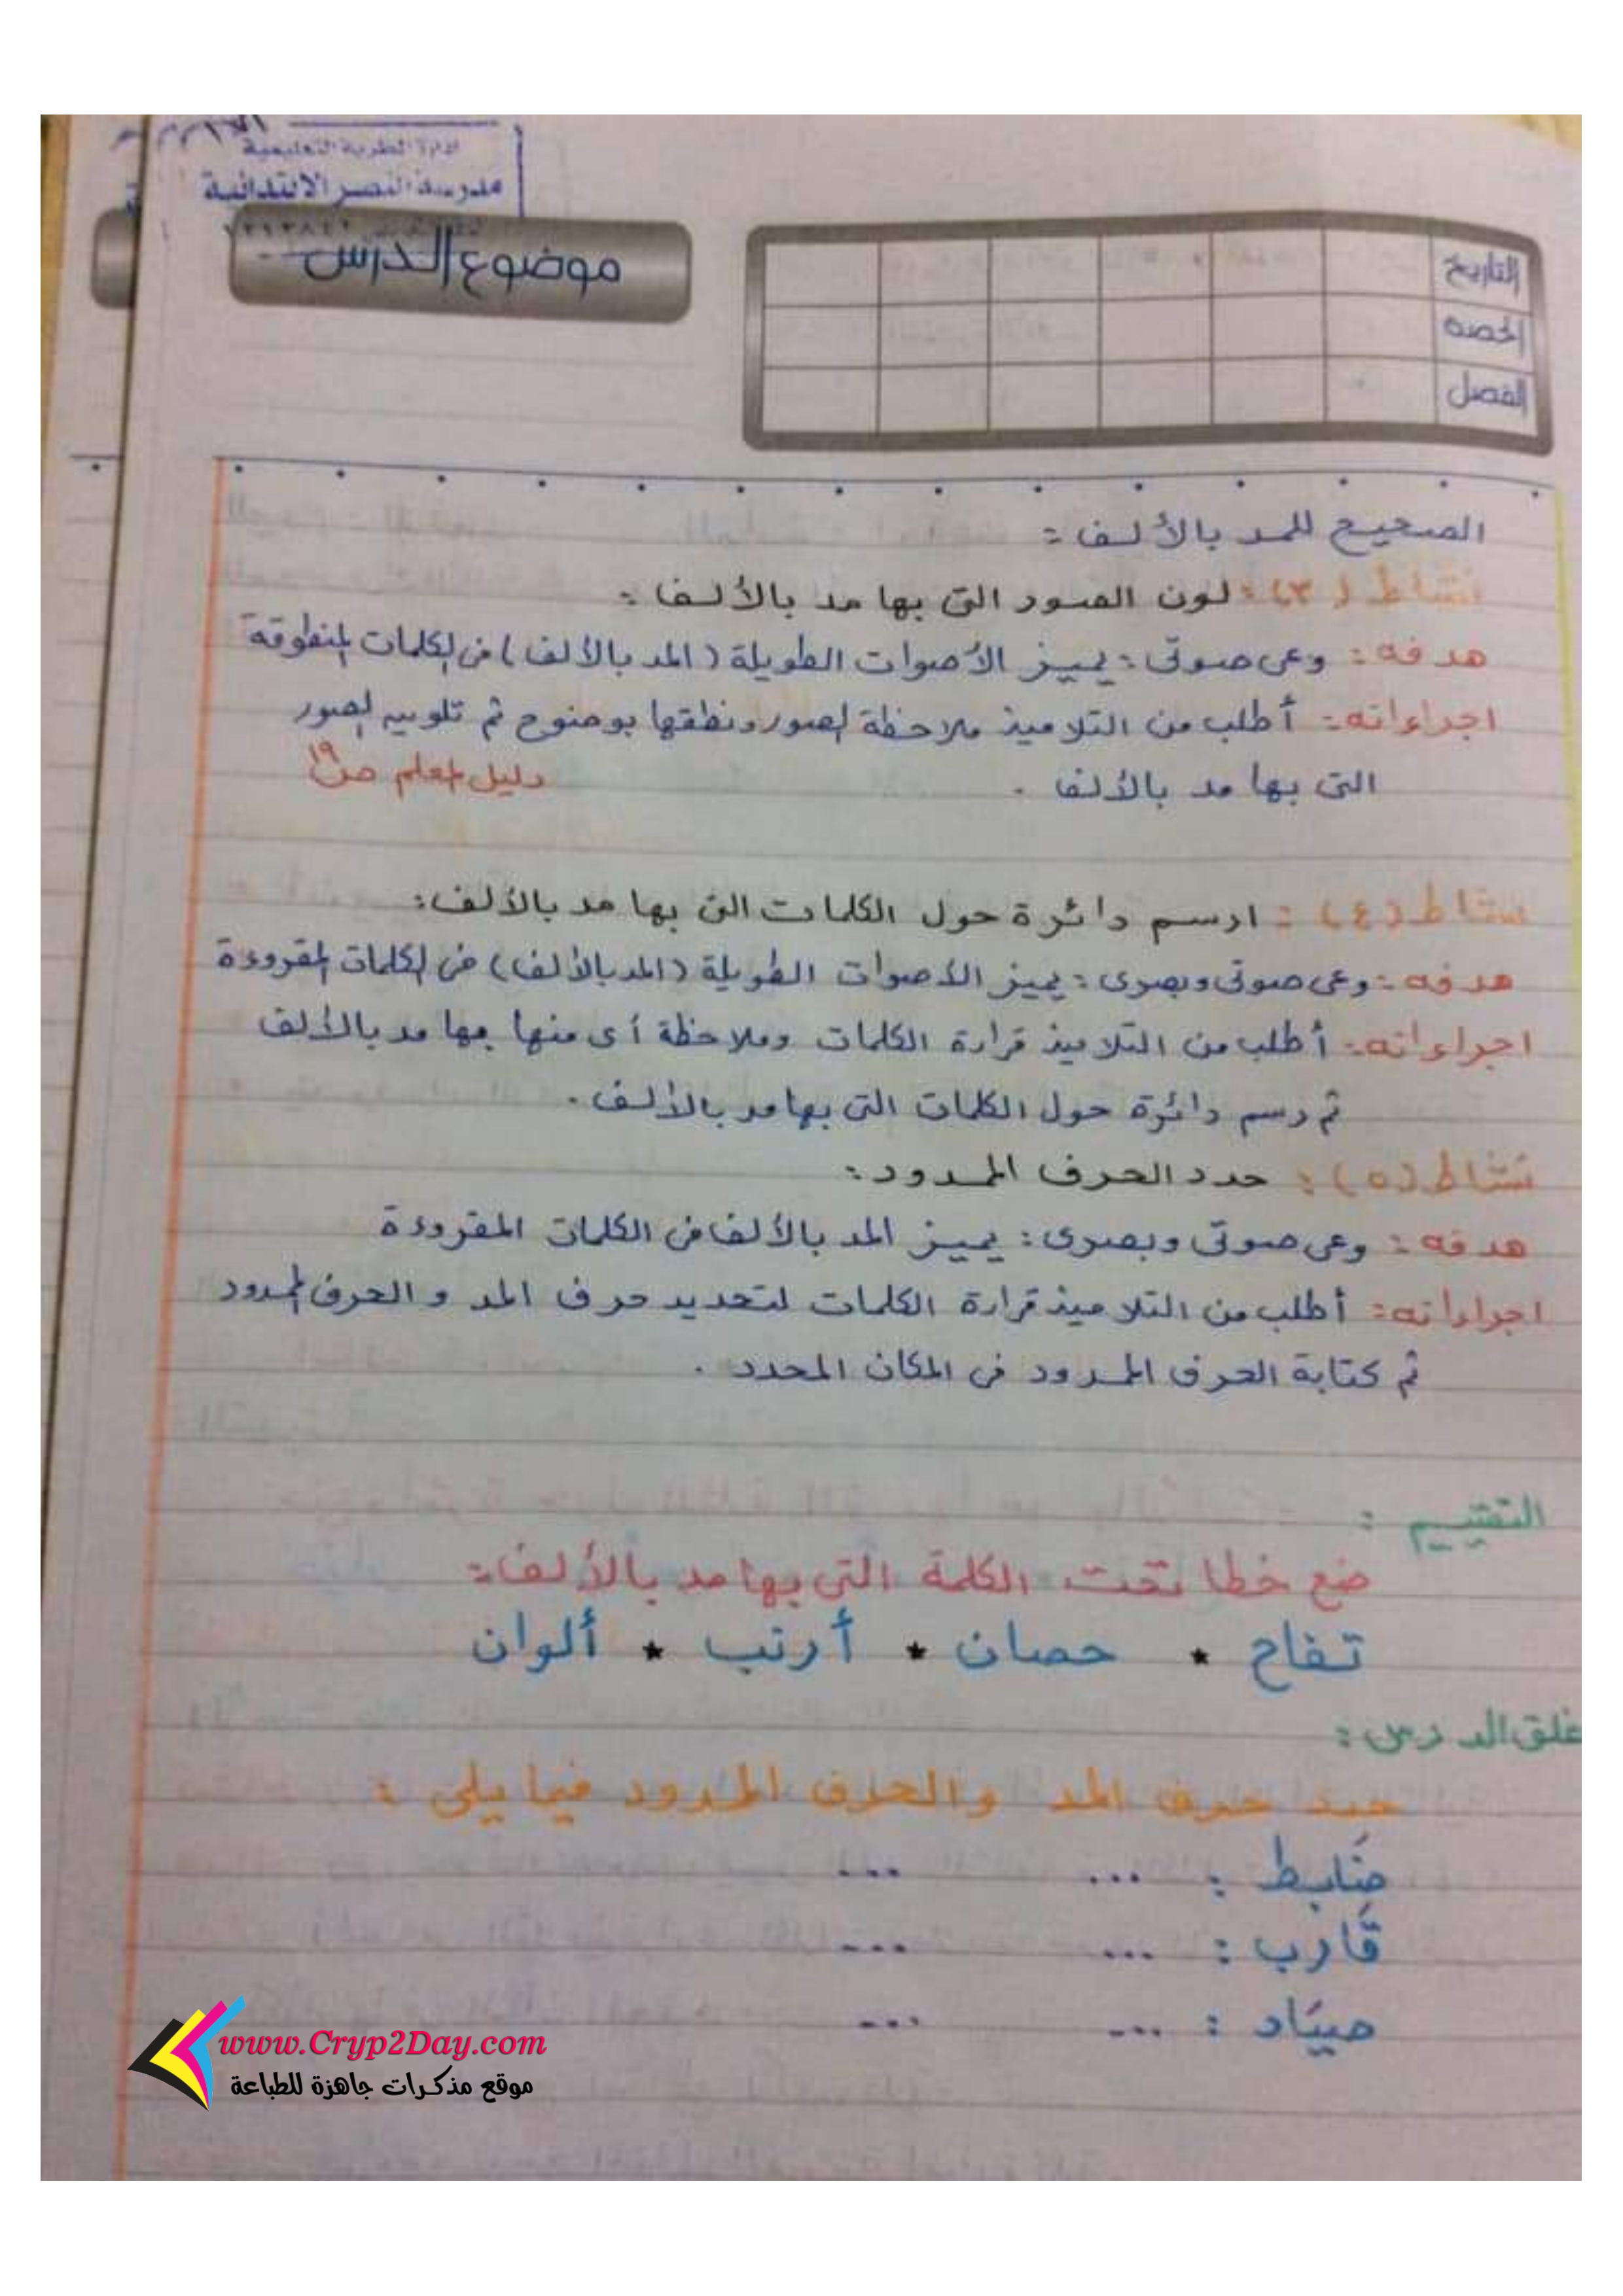 ادارة المطرية التعليمية
مدرسة النصر الابتدائية
موضوع الدرس
التاريخ
الحصة
الفصل
الصحيح للمد بالألف :
نشاط (٣) : لون الصور التى بها مد بالألف :
هدفه : وعى صوتى : يميز الأصوات الطويلة (المد بالألف) فى الكلمات المنطوقة
اجراءاته : أطلب من التلاميذ ملاحظة الصور ونطقها بوضوح ثم تلوين الصور
التى بها مد بالألف . دليل المعلم ص ١٩
نشاط (٤) : ارسم دائرة حول الكلمات التى بها مد بالألف :
هدفه : وعى صوتى وبصرى : يميز الأصوات الطويلة (المد بالألف) فى الكلمات المقروءة
اجراءاته : أطلب من التلاميذ قراءة الكلمات وملاحظة أى منها بها مد بالألف
ثم رسم دائرة حول الكلمات التى بها مد بالألف .
نشاط (٥) : حدد الحرف الممدود :
هدفه : وعى صوتى وبصرى : يميز المد بالألف فى الكلمات المقروءة
اجراءاته : أطلب من التلاميذ قراءة الكلمات لتحديد حرف المد و الحرف الممدود
ثم كتابة الحرف الممدود فى المكان المحدد .
التقييم :
ضع خطا تحت الكلمة التى بها مد بالألف :
تفاح * حصان * أرنب * ألوان
غلق الدرس :
حدد حرف المد والحرف الممدود فيما يلى :
ضَابط : ... ...
قَارب : ... ...
صيَاد : ... ...
www.Cryp2Day.com
موقع مذكرات جاهزة للطباعة